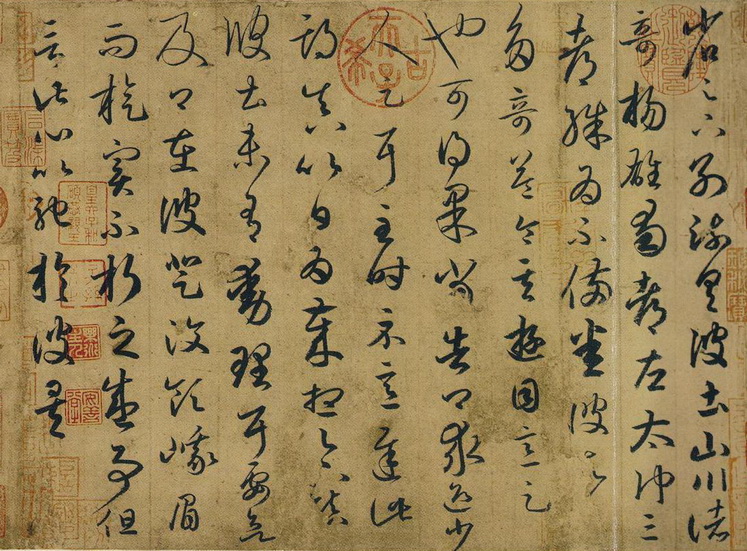 省足下別疏具彼土山川諸
奇楊雄蜀都左太沖三
都殊為不備悉彼故為
多奇益令其遊目意足
也可得果當告卿求迎少
人足耳至時示意遲此
期真以日為歲想足下鎮
彼土未有動理耳要欲
及卿在彼登汶領峨眉
而旋實不朽之盛事但
言此心以馳於彼矣
古希天子